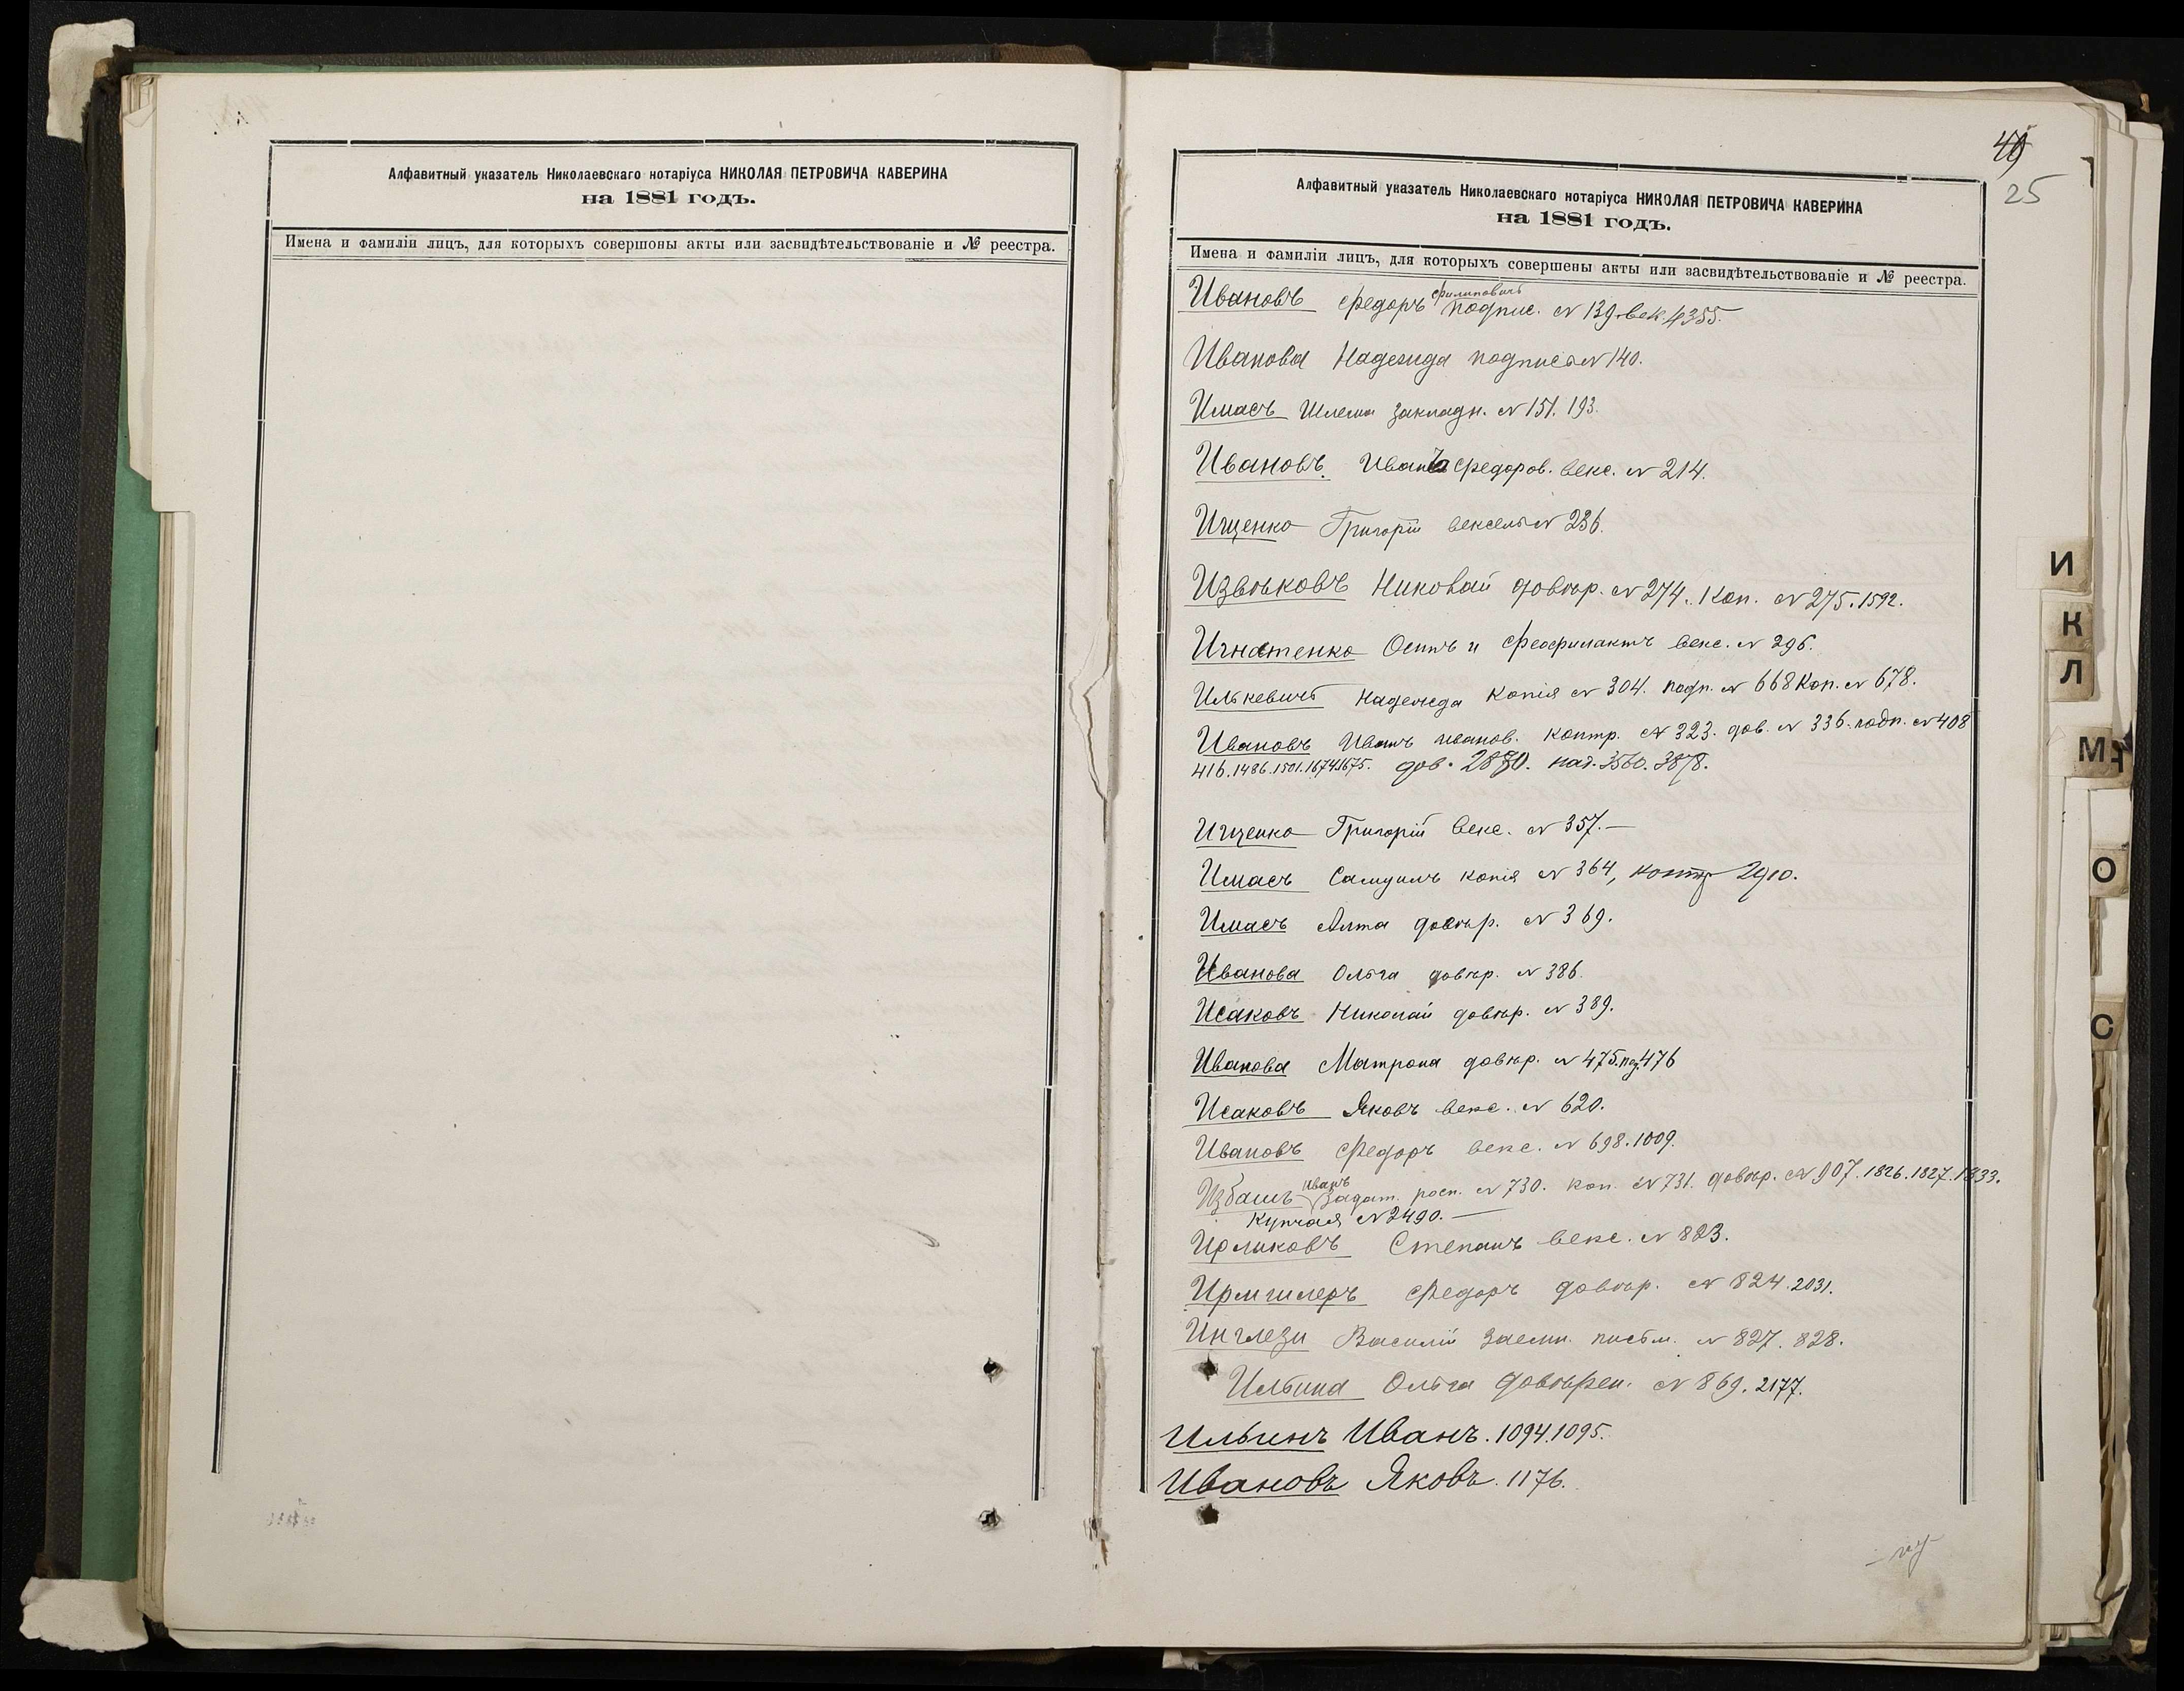 Алфавитный указатель Николаевскаго нотаріуса НИКОЛАЯ ПЕТРОВИЧА КАВЕРИНА
на 1881 годъ.
Имена и Фамиліи лицъ, для которыхъ совершоны акты или засвидѣтельствованіе и № реестра.
49
25
Алфавитный указатель Николаевскаго нотаріуса НИКОЛАЯ ПЕТРОВИЧА КАВЕРИНА
на 1881 годъ.
Имена и Фамиліи лицъ, для которыхъ совершены акты или засвидѣтельствованіе и № реестра.
Ивановъ Федоръ Филиповичъ подпис. № 139. век. 4355.
Иванова Надежда подпись № 140.
Имасъ Шлема закладн. № 151. 193.
Ивановъ. Иванъ Федоров. векс. № 214.
Ищенко Григорій вексель № 236.
Извѣковъ Николай довѣр. № 274. Коп. № 275. 1592.
Игнатенко Осипъ и Феофилактъ векс. № 296.
Илькевичъ Надежда Копія № 304. подп. № 668 Коп. № 678.
Ивановъ Иванъ иванов. контр. № 323. дов. № 336. подп. № 408
416. 1486. 1501. 1674. 1675. дов. 2880. 3560. 3878.
Ищенко Григорій векс. № 357.—
Имасъ Самуилъ копія № 364, контр 2910.
Имасъ Алта довѣр. № 369.
Иванова Ольга довѣр. № 386.
Исаковъ Николай довѣр. № 389.
Иванова Матрона довѣр. № 475. 476
Исаковъ Яковъ векс. № 620.
Ивановъ Федоръ векс. № 698. 1009.
Избашъ Иванъ Задат. росп. № 730. коп. № 731. довѣр. № 907. 1826. 1827. 1833.
Купчая № 2490.—
Ирликовъ Степанъ векс. № 823.
Ирмгилеръ Федоръ довѣр. № 824. 2031.
Инглези Василій Заемн. письм. № 827. 828.
Ильина Ольга довѣрен. № 869. 2177.
Ильинъ Иванъ. 1094. 1095.
Ивановъ Яковъ. 1176.
И
К
Л
М
О
С